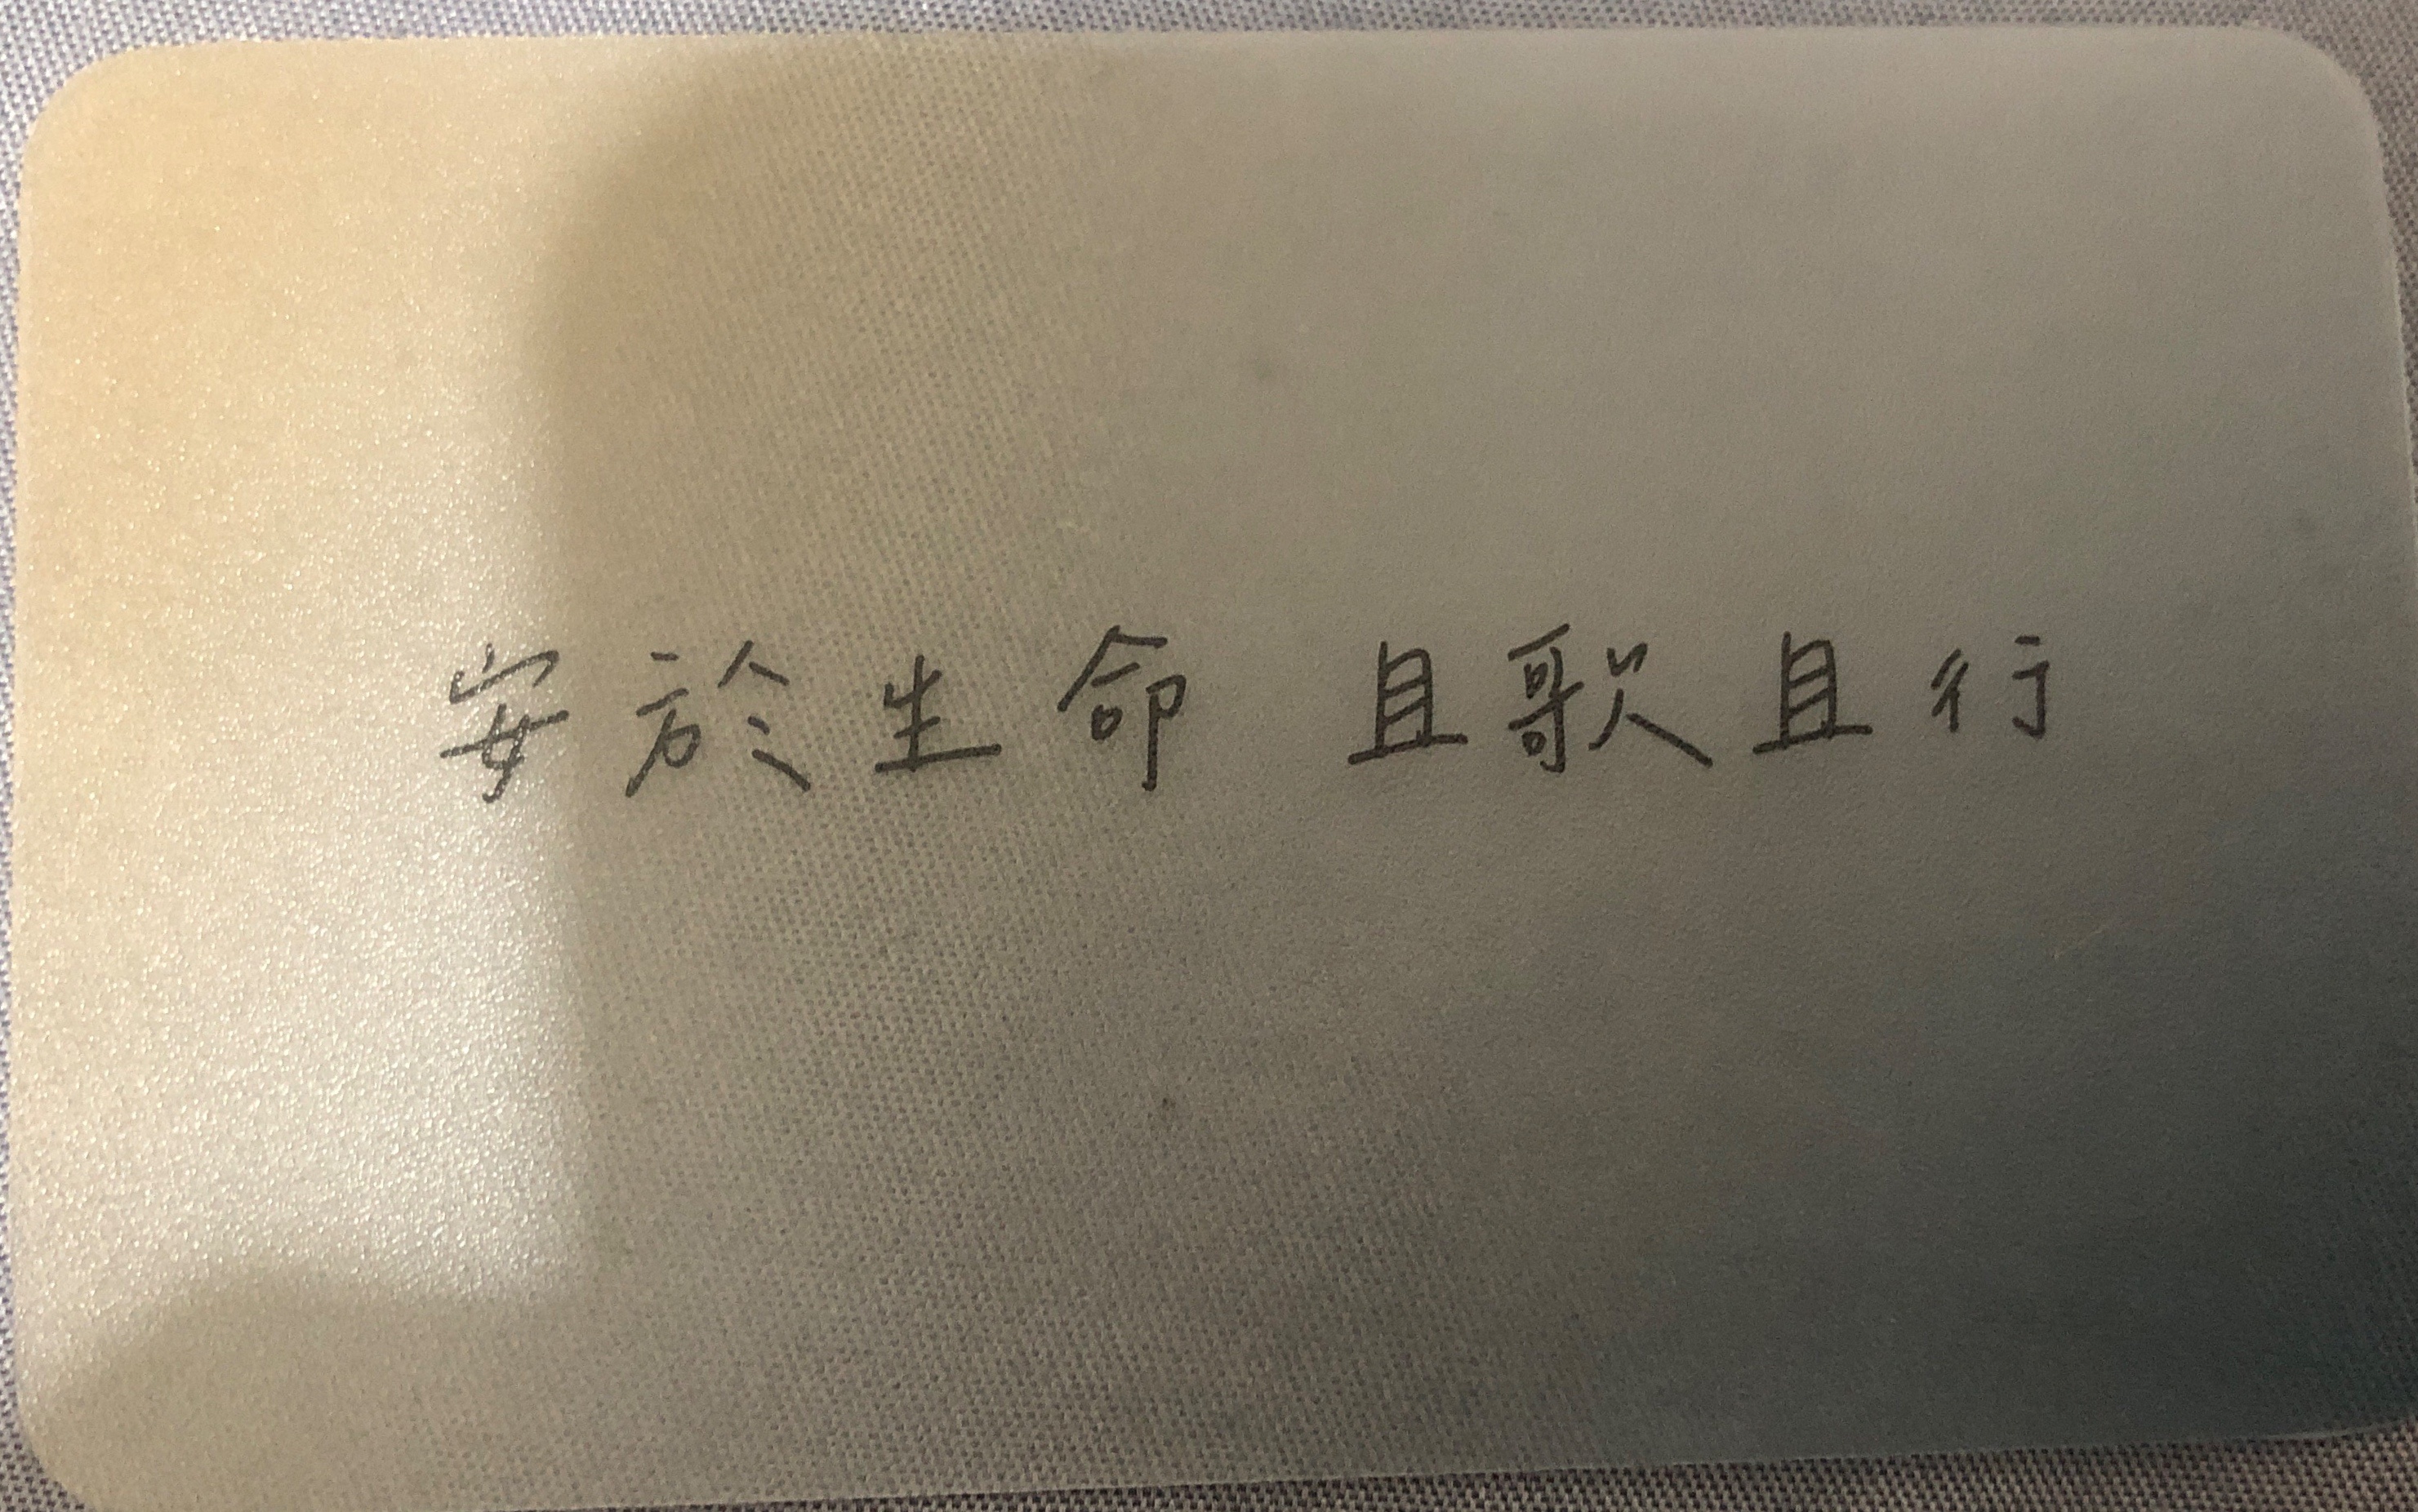 安於生命 且歌且行